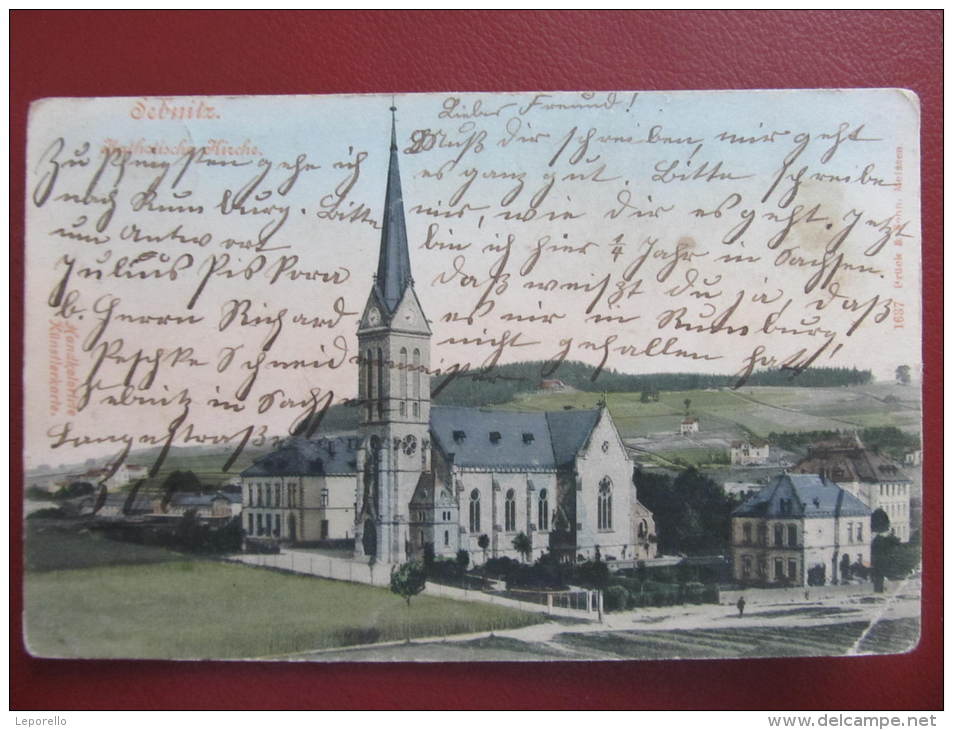 Sebnitz.
Katholische Kirche.
Liebes Freund!
Muß dir schreiben, mir geht
es ganz gut. Bitte schreibe
mir, wie dir es geht. Jetzt
bin ich hier 1/4 Jahr in Sachsen.
Daß weißt du ja, daß
es mir in Rumburg
nicht gefallen hatt!
Zu Pfingsten gehe ich
nach Rumburg. Bitte
um Antwort
Julius Piskora
b. Herrn Richard
Peschke Schneidermeister
Sebnitz in Sachsen
Langestraße
Handkolorirte
Künstlerkarte.
1637 Brück & Sohn, Meissen.
Leporello
http://www.delcampe.net